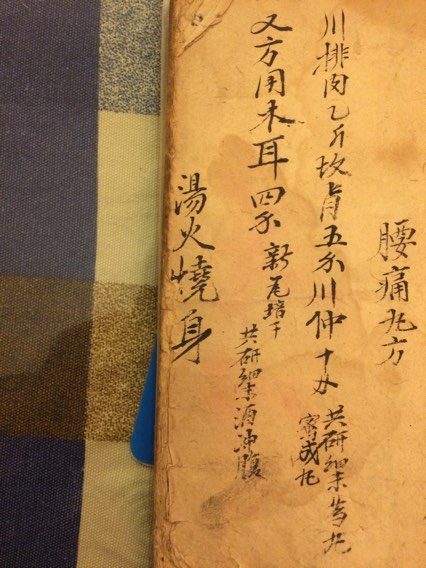 腰痛丸方
川排肉乙斤故肯五分川仲十分 共研細末為丸 蜜成丸
又方用木耳四分 新瓦培干 共研細末酒冲腹
湯火燒身